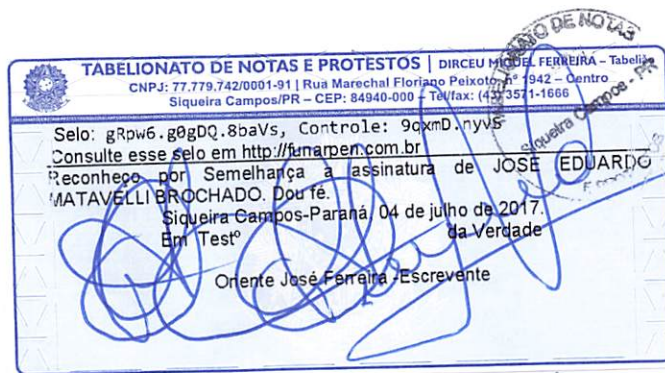 TABELIONATO DE NOTAS E PROTESTOS | DIRCEU MIGUEL FERREIRA - Tabelião
CNPJ: 77.779.742/0001-91 | Rua Marechal Floriano Peixoto, nº 1942 - Centro
Siqueira Campos/PR - CEP: 84940-000 - Tel/fax: (43) 3571-1666
Selo: gRpw6.g0gDQ.8baVs, Controle: 9qxmD.nyvS
Consulte esse selo em http://funarpen.com.br
Reconheço por Semelhança a assinatura de JOSE EDUARDO
MATAVELLI BROCHADO. Dou fé.
Siqueira Campos-Paraná, 04 de julho de 2017.
Em Testº da Verdade
Oriente José Ferreira -Escrevente
DE NOTAS
Siqueira Campos - PR